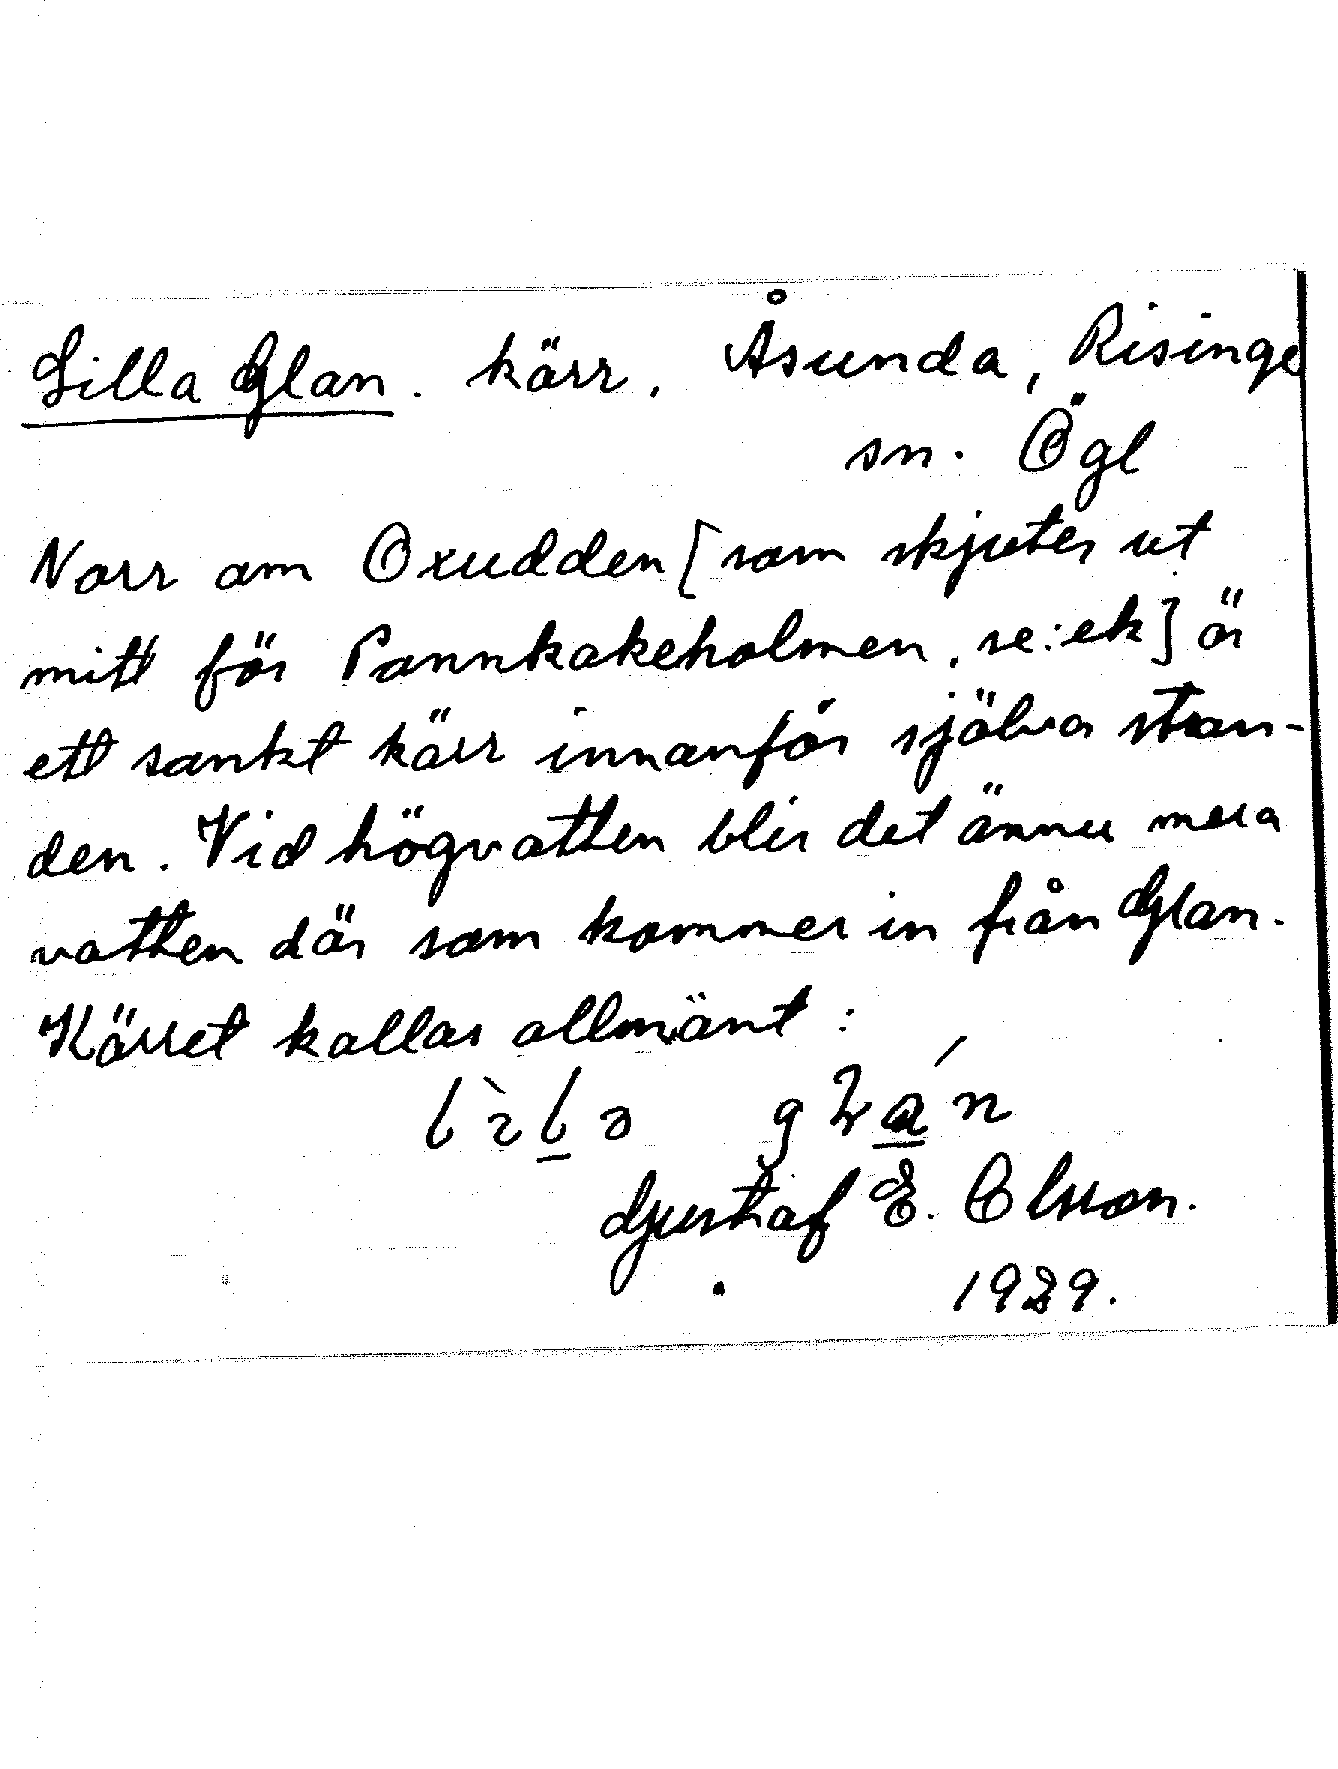 Lilla Glan. kärr. Åsunda, Risinge
sn. Ögl
Norr om Oxudden [som skjuter ut
mitt för Pannkakeholmen, se: ek] är
ett sankt kärr innanför själva stran-
den. Vid högvatten blir det ännu mera
vatten där som kommer in från Glan.
Kärret kallas allmänt:
Gustaf E. Olsson.
1929.